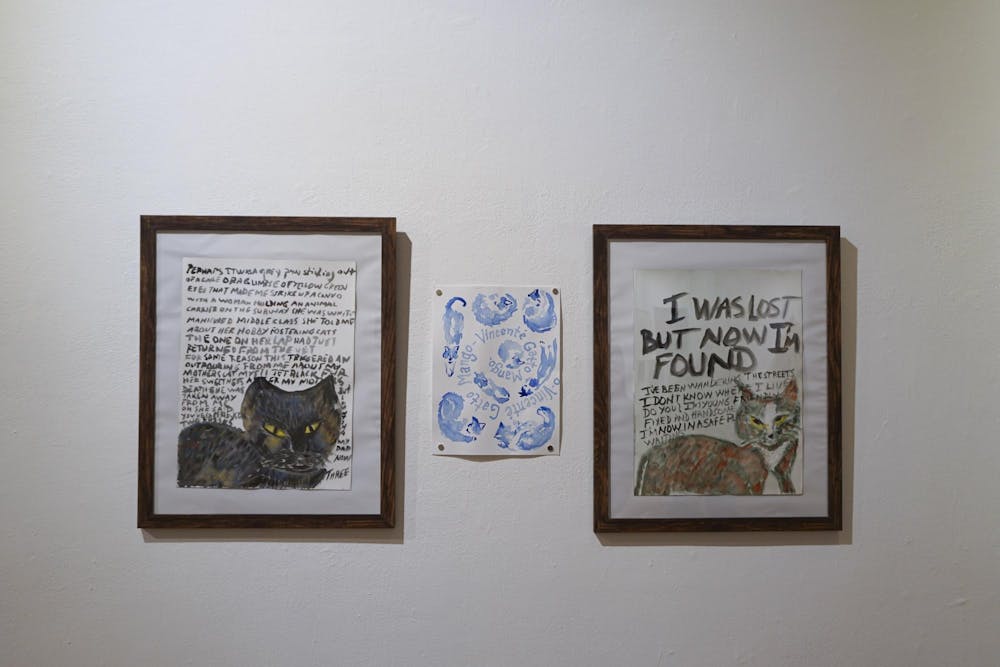 PERHAPS IT WAS A grey paw sticking out
OF A CAGE OR A GLIMPSE OF YELLOW GREEN
EYES THAT MADE ME STRIKE UP A CONVO
WITH A WOMAN HOLDING AN ANIMAL
CARRIER ON THE SUBWAY SHE WAS WHITE
MANICURED MIDDLE CLASS SHE TOLD ME
ABOUT HER HOBBY FOSTERING CATS
THE ONE ON HER LAP HAD JUST
RETURNED FROM THE VET
FOR SOME REASON THIS TRIGGERED AN
OUTPOURING FROM ME ABOUT MY
MOTHERS CAT JET BLACK FUR
HER SWEETNESS MY MOTHERS
DEATH SHE WAS BUT
TAKEN AWAY
FROM ME
MY
DAD
NOW
THREE
Mango Vincente Gatto
Mango
Vincente
Gatto
I WAS LOST
BUT NOW I'M
FOUND
I'VE BEEN WANDERING THE STREETS
I DON'T KNOW WHERE I LIVE
DO YOU? I'M YOUNG
FIXED AND HANDSOME
I'M NOW IN A SAFE
WAITING